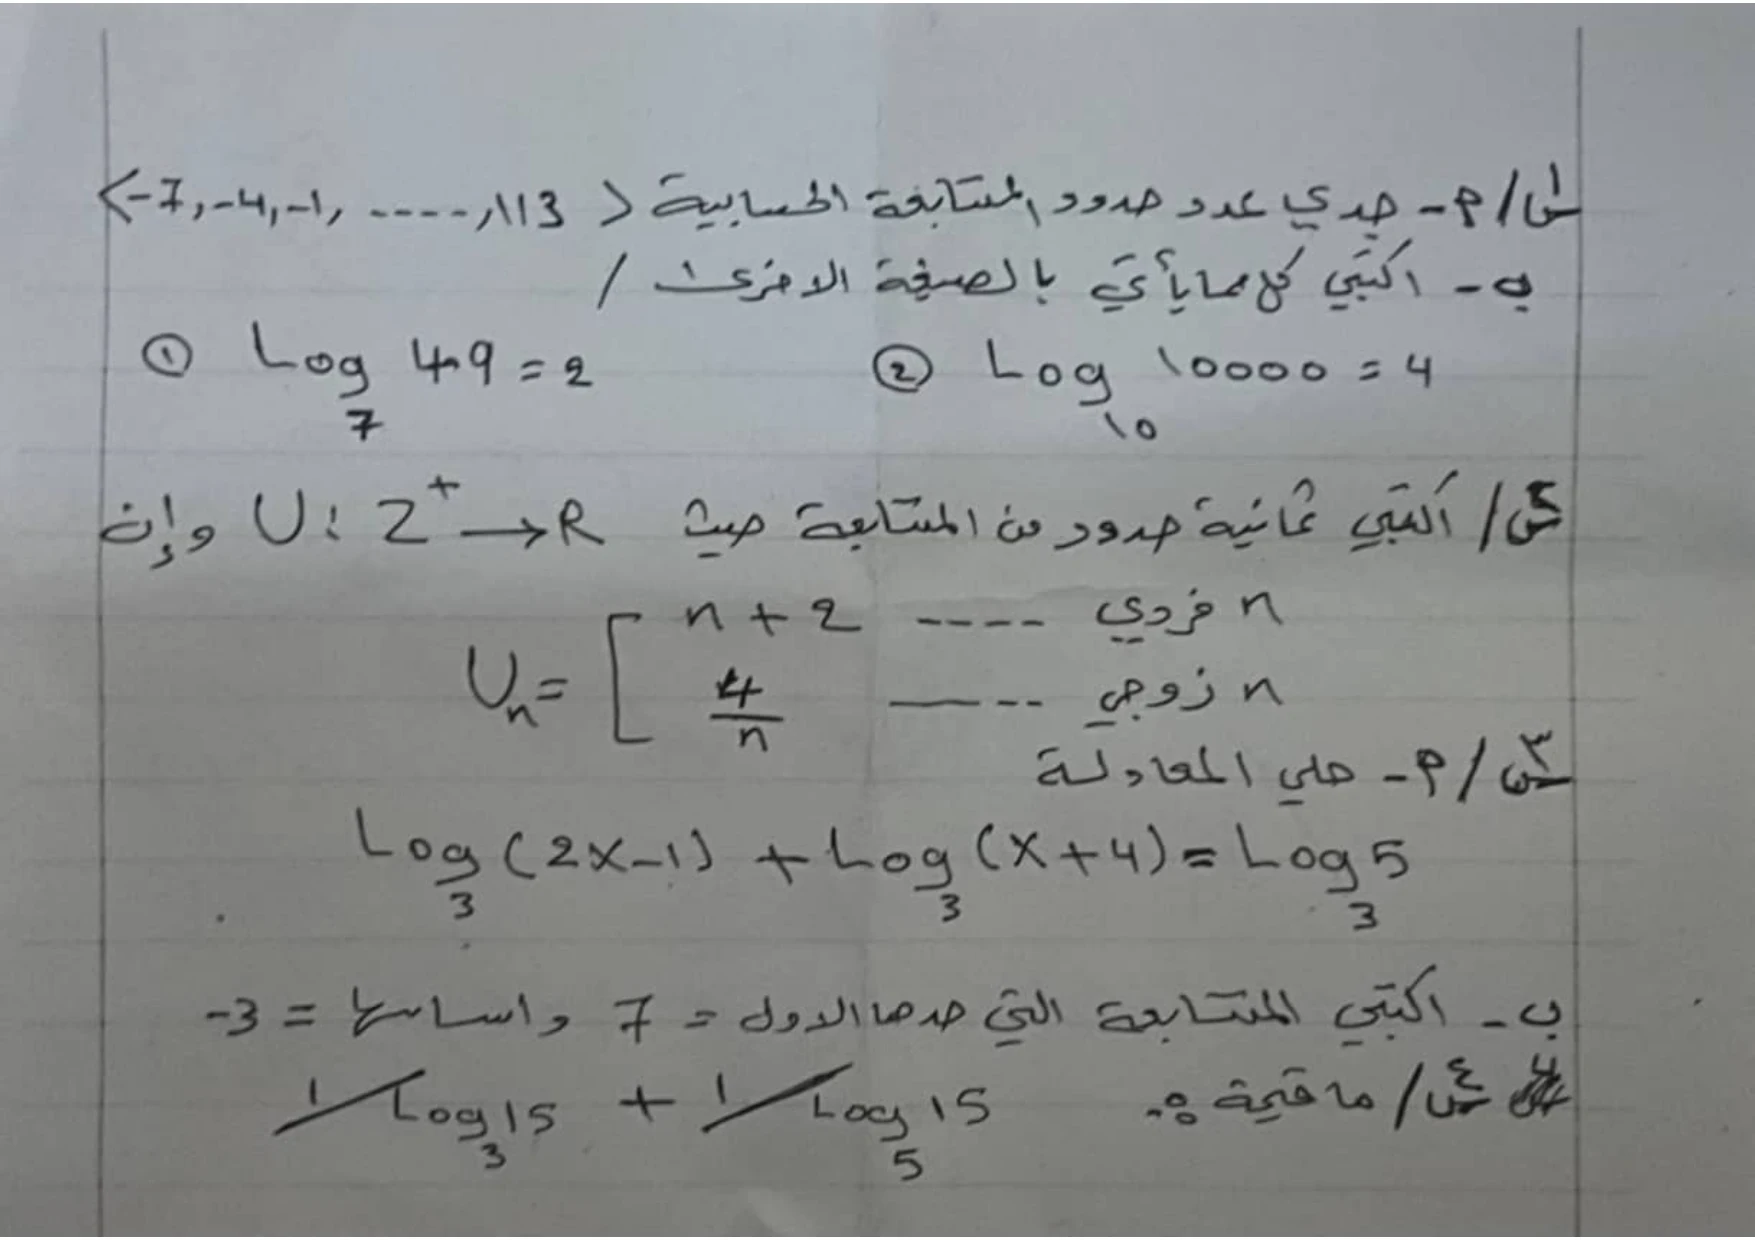 س١/ أ- جدي عدد حدود المتتابعة الحسابية <-7, -4, -1, ----, 113>
ب- اكتبي كل مما يأتي بالصيغة الاخرى /
① Log₇ 49 = 2 ② Log₁₀ 10000 = 4
س٢/ أكتبي ثمانية حدود من المتتابعة حيث U: Z⁺ → R وإن
Uₙ = [ n + 2 ---- n فردي
4/n ---- n زوجي
س٣/ أ- حلي المعادلة
Log₃ (2x-1) + Log₃ (x+4) = Log₃ 5
ب- اكتبي المتتابعة التي حدها الاول = 7 واساسها = -3
س٤/ ما قيمة: 1/Log₃ 15 + 1/Log₅ 15